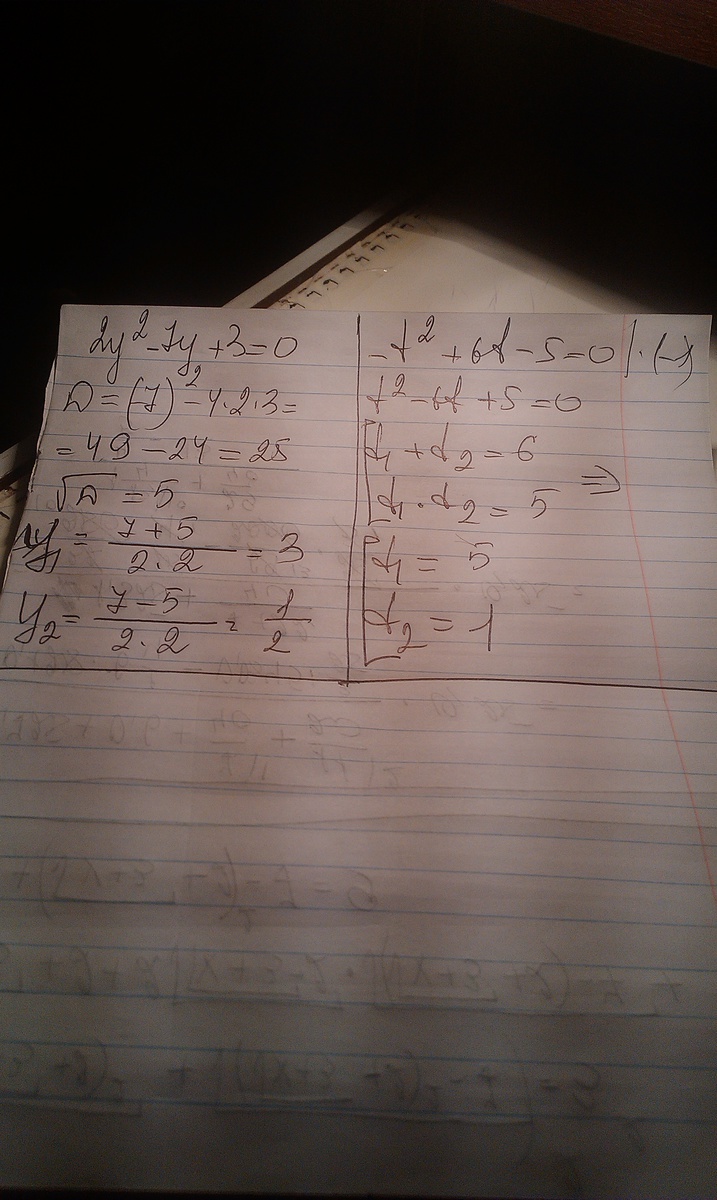 2y² - 7y + 3 = 0
D = (7)² - 4·2·3 =
= 49 - 24 = 25
√D = 5
y₁ = (7 + 5)/(2·2) = 3
y₂ = (7 - 5)/(2·2) = 1/2
-t² + 6t - 5 = 0 | ·(-1)
t² - 6t + 5 = 0
[ t₁ + t₂ = 6
[ t₁ · t₂ = 5 ⇒
[ t₁ = 5
[ t₂ = 1